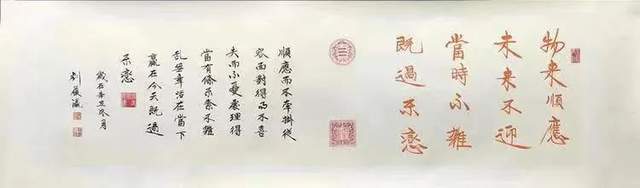 物来順應
未来不迎
當時不雜
既過不戀
順應而不牽掛從
容面對得而不喜
失而不憂處理得
當有條不紊不雜
亂無章活在當下
贏在今天既過
不戀
歲在辛丑冬月
刘